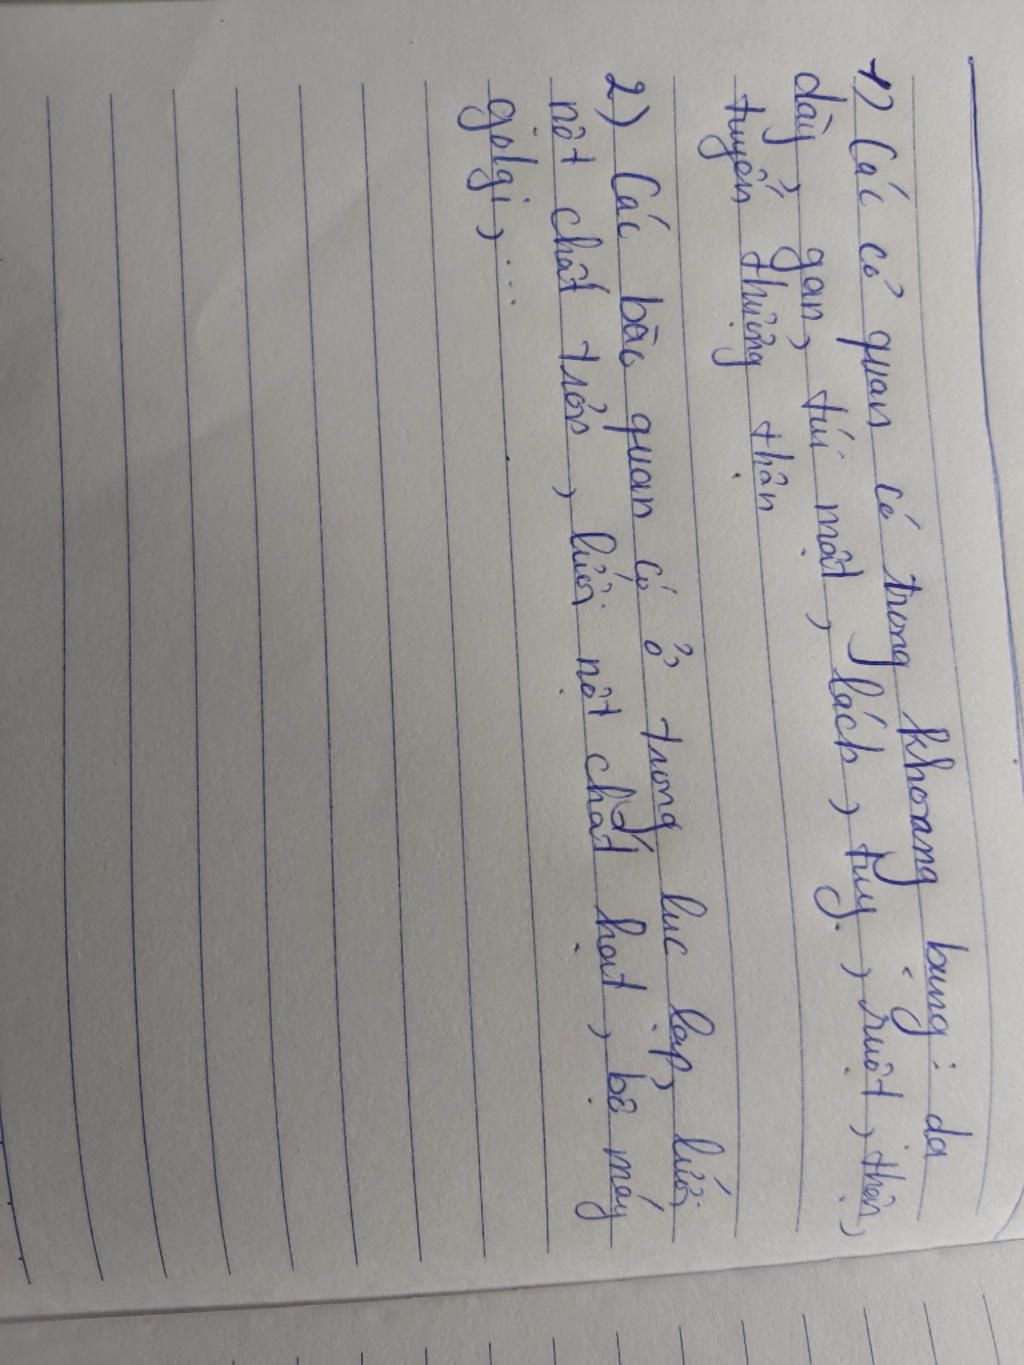 1) Các cơ quan có trong khoang bụng: dạ
dày, gan, túi mật, lách, tụy, ruột, thận,
tuyến thượng thận
2) Các bào quan có ở trong lục lạp, lưới
nột chất trơn, lưới nột chất hạt, bộ máy
golgi, ...